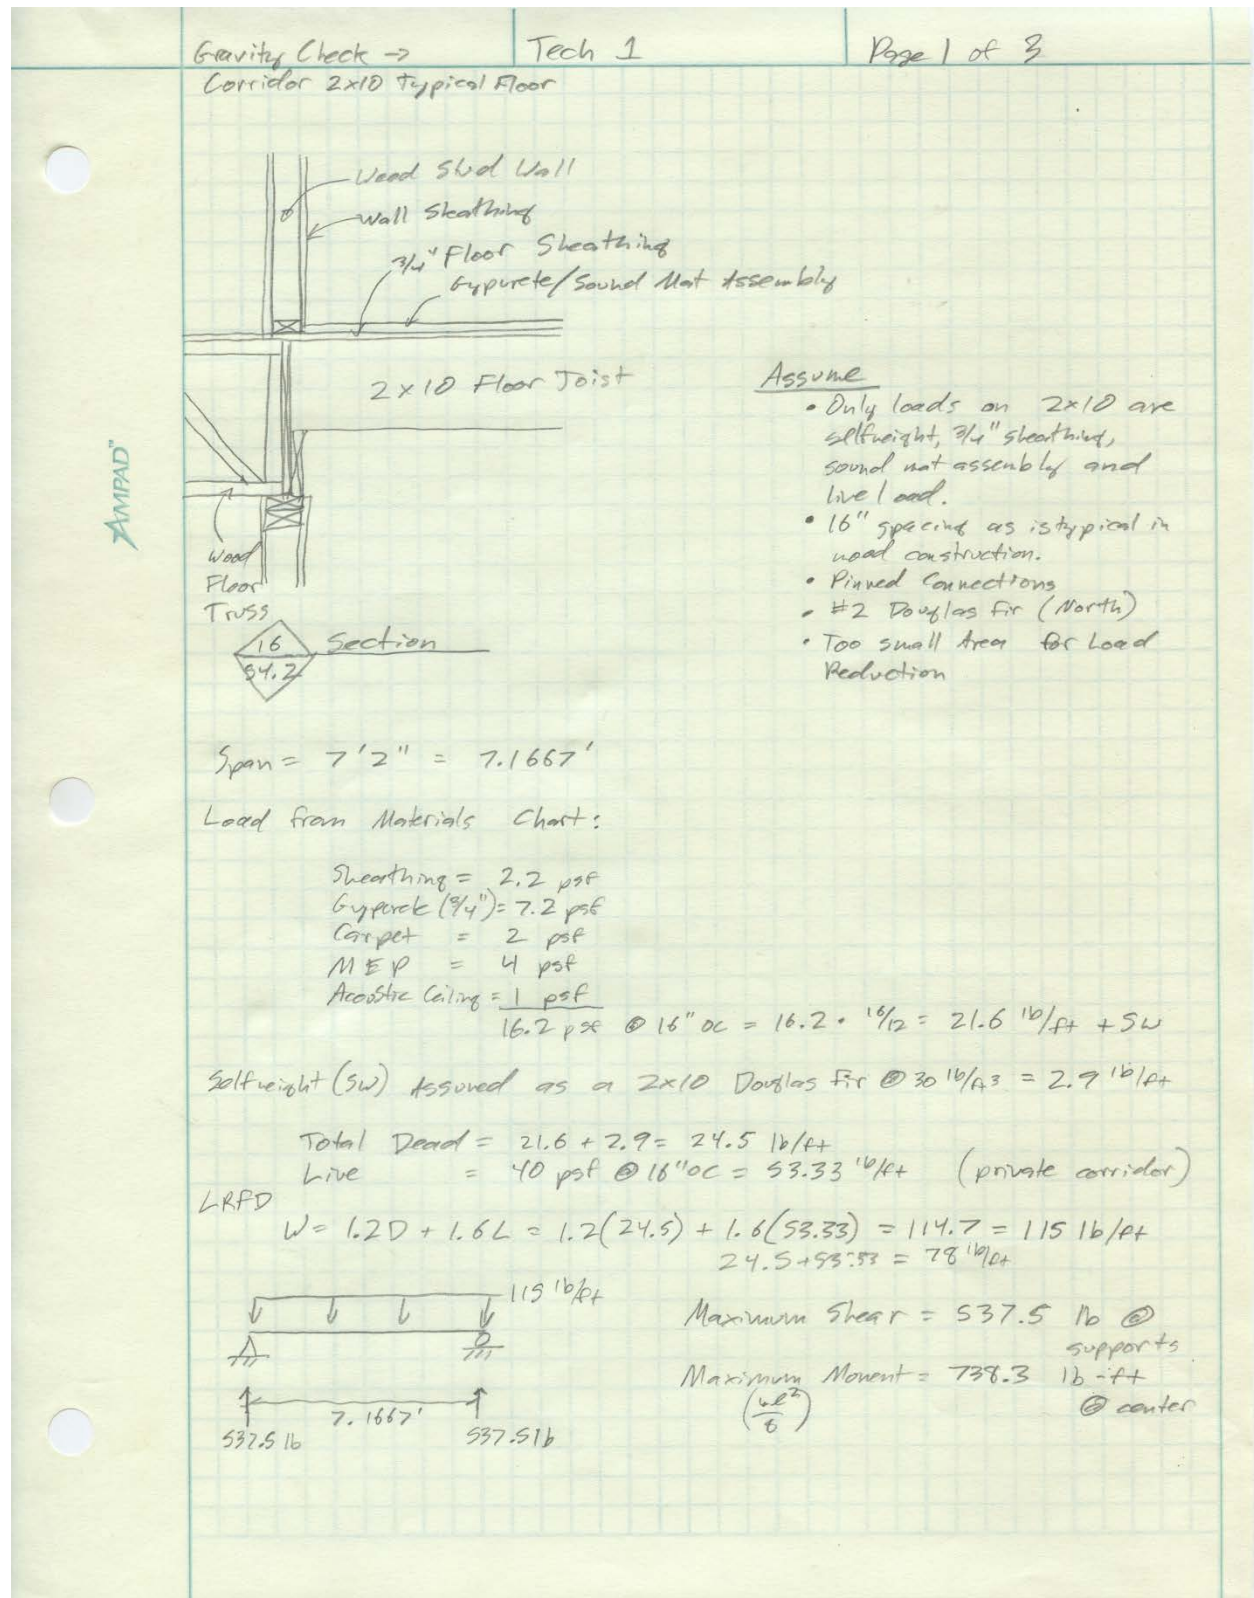 Gravity Check → Tech 1 Page 1 of 3
Corridor 2x10 Typical Floor
Wood Stud Wall
Wall Sheathing
3/4" Floor Sheathing
Gypcrete/Sound Mat Assembly
2x10 Floor Joist
Wood
Floor
Truss
16
S4.2
Section
AMPAD™
Assume
• Only loads on 2x10 are
selfweight, 3/4" sheathing,
sound mat assembly and
live load.
• 16" spacing as is typical in
wood construction.
• Pinned Connections
• #2 Douglas Fir (North)
• Too small Area for Load
Reduction
Span = 7'2" = 7.1667'
Load from Materials Chart:
Sheathing = 2.2 psf
Gypcrete (3/4") = 7.2 psf
Carpet = 2 psf
MEP = 4 psf
Acoustic Ceiling = 1 psf
16.2 psf @ 16" oc = 16.2 • 16/12 = 21.6 lb/ft + SW
Selfweight (SW) Assumed as a 2x10 Douglas Fir @ 30 lb/ft3 = 2.9 lb/ft
Total Dead = 21.6 + 2.9 = 24.5 lb/ft
Live = 40 psf @ 16" oc = 53.33 lb/ft (private corridor)
LRFD
W = 1.2D + 1.6L = 1.2(24.5) + 1.6(53.33) = 114.7 = 115 lb/ft
24.5 + 53.33 = 78 lb/ft
115 lb/ft
7.1667'
537.5 lb 537.5 lb
Maximum Shear = 537.5 lb @
supports
Maximum Moment = 738.3 lb-ft
(wl²/8) @ center